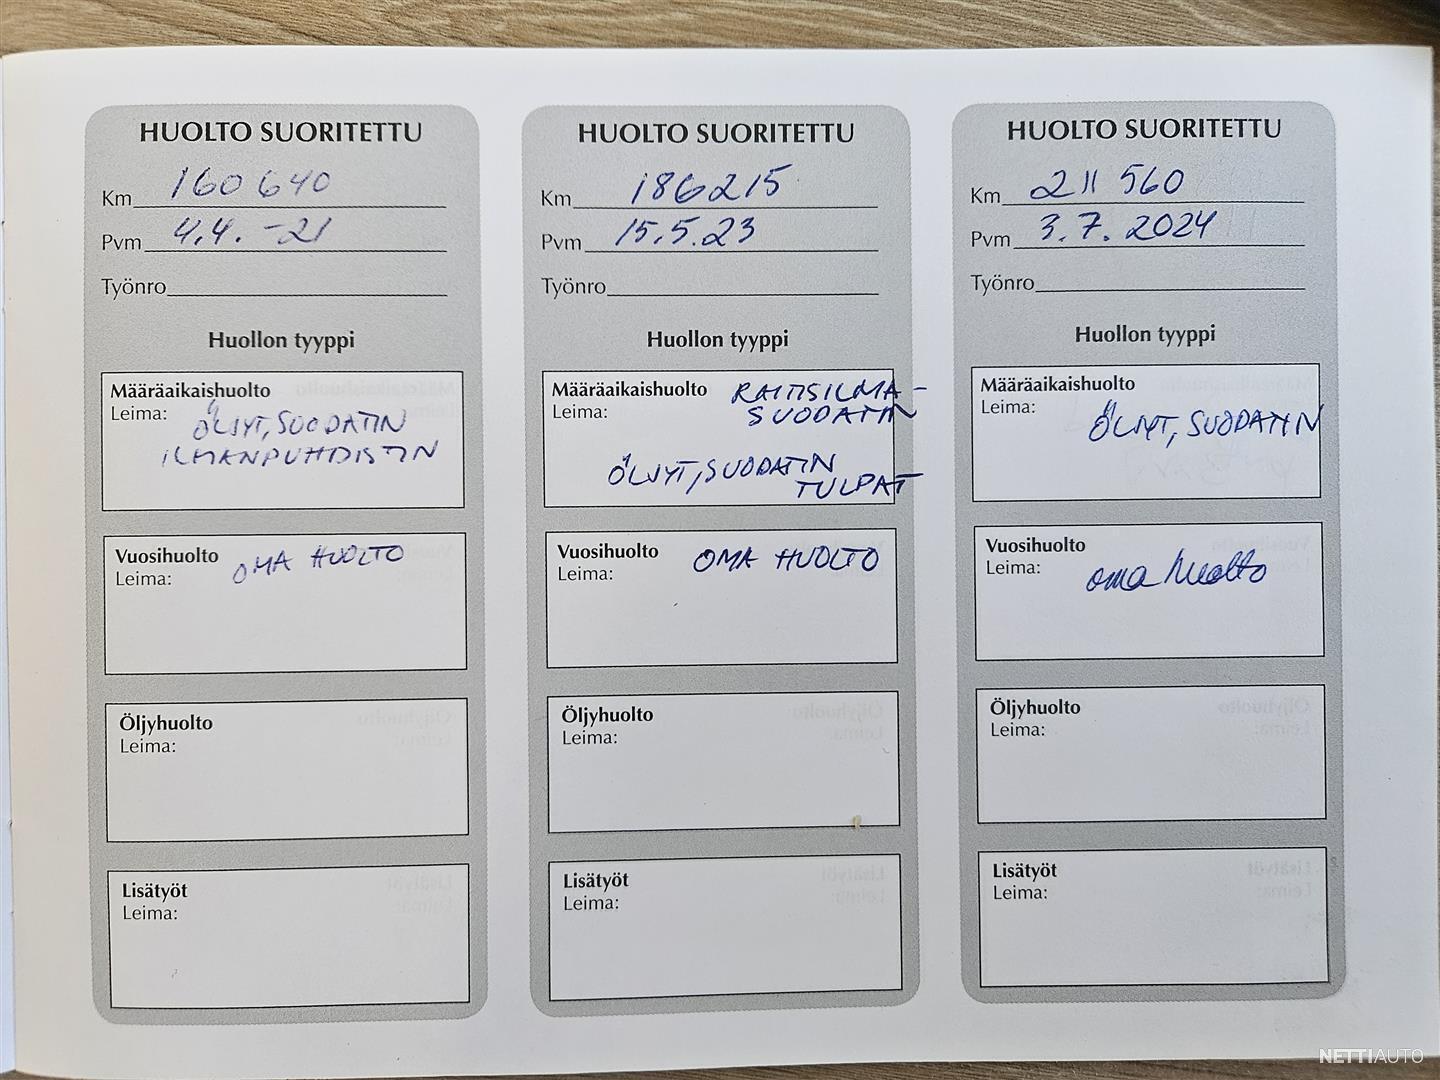 HUOLTO SUORITETTU
Km 160 640
Pvm 4.4. -21
Työnro
Huollon tyyppi
Määräaikaishuolto
Leima:
ÖLJYT, SUODATIN
ILMANPUHDISTIN
Vuosihuolto OMA HUOLTO
Leima:
Öljyhuolto
Leima:
Lisätyöt
Leima:
HUOLTO SUORITETTU
Km 186215
Pvm 15.5.23
Työnro
Huollon tyyppi
Määräaikaishuolto RAITISILMA-
Leima: SUODATIN
ÖLJYT, SUODATIN
TULPAT
Vuosihuolto OMA HUOLTO
Leima:
Öljyhuolto
Leima:
Lisätyöt
Leima:
HUOLTO SUORITETTU
Km 211 560
Pvm 3.7.2024
Työnro
Huollon tyyppi
Määräaikaishuolto
Leima: ÖLJYT, SUODATIN
Vuosihuolto
Leima: oma huolto
Öljyhuolto
Leima:
Lisätyöt
Leima:
NETTIAUTO